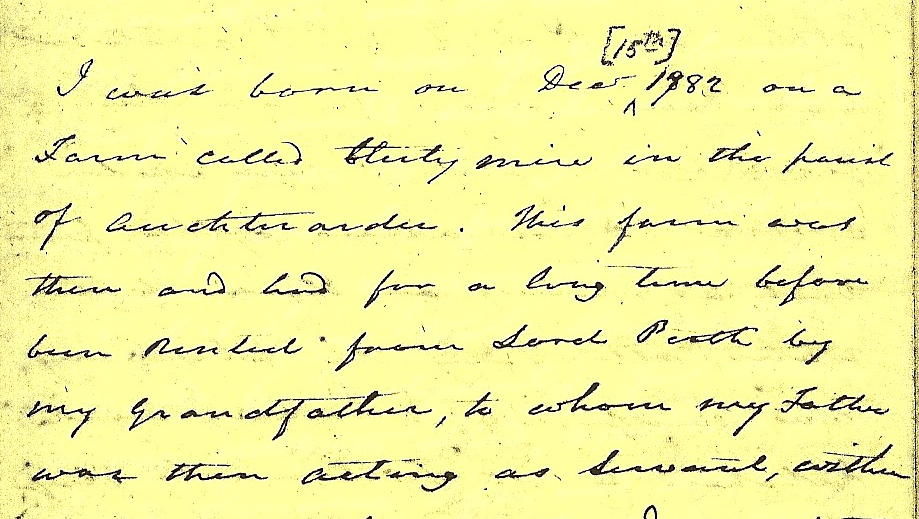 [15th]
I was born on Decr ^ on a
Farm called in the parish
of Auchterarder. This farm was
then and had for a long time before
been Rented from Lord Perth by
my Grandfather, to whom my Father
was then acting as Servant,